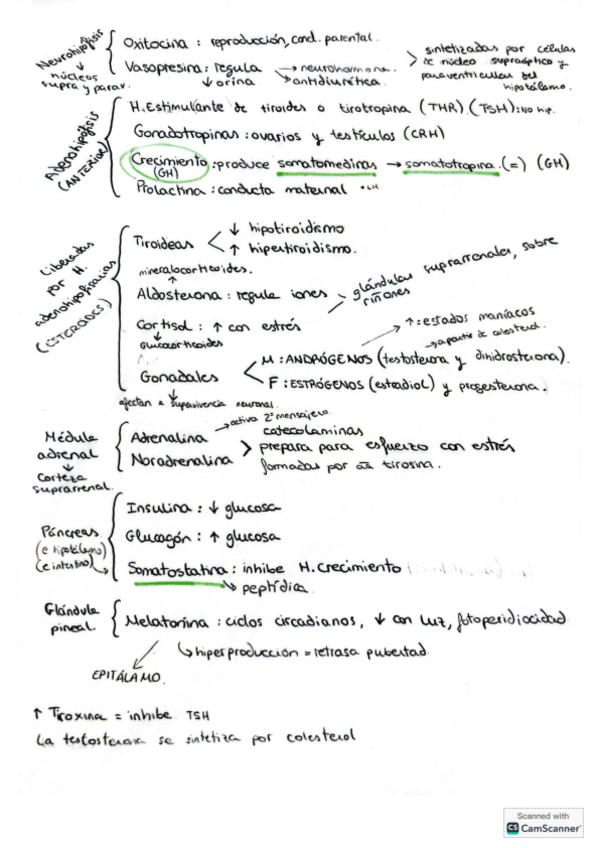 Neurohipófisis
núcleos
supra y parav.
Oxitocina : reproducción, cond. parental.
Vasopresina : regula → neurohormona.
orina → antidiurética.
sintetizadas por células
de núcleo supraóptico y
paraventricular del
hipotálamo.
Adenohipófisis
(ANTERIOR)
H. Estimulante de tiroides o tirotropina (THR) (TSH): no hip.
Gonadotropinas : ovarios y testículos (CRH)
Crecimiento (GH) : produce somatomedinas → somatotropina. (=) (GH)
Prolactina : conducta maternal • LH
Liberadas
por H.
adenohipofisarias
(ESTEROIDES)
Tiroideas
↓ hipotiroidismo
↑ hipertiroidismo.
mineralocorticoides.
↑
Aldosterona : regula iones
glándulas suprarrenales, sobre
riñones
Cortisol : ↑ con estrés
→ ↑ = estados maníacos
Glucocorticoides
→ a partir de colesterol.
Gonadales
M : ANDRÓGENOS (testosterona y dihidrosterona).
F : ESTRÓGENOS (estradiol) y progesterona.
afectan a supervivencia neuronal.
Médula
adrenal
↓
Corteza
suprarrenal.
Adrenalina → activa 2º mensajero
catecolaminas
Noradrenalina > prepara para esfuerzo con estrés
formadas por aa tirosina.
Páncreas
(e hipotálamo)
(e intestino)
Insulina : ↓ glucosa
Glucagón : ↑ glucosa
Somatostatina : inhibe H. Crecimiento
↳ peptídica.
Glándula
pineal.
Melatonina : ciclos circadianos, ↓ con luz, fotoperidiocidad
↳ hiperproducción = retrasa pubertad.
EPITÁLAMO.
↑ Tiroxina = inhibe TSH
La testosterona se sintetiza por colesterol
Scanned with
CS CamScanner